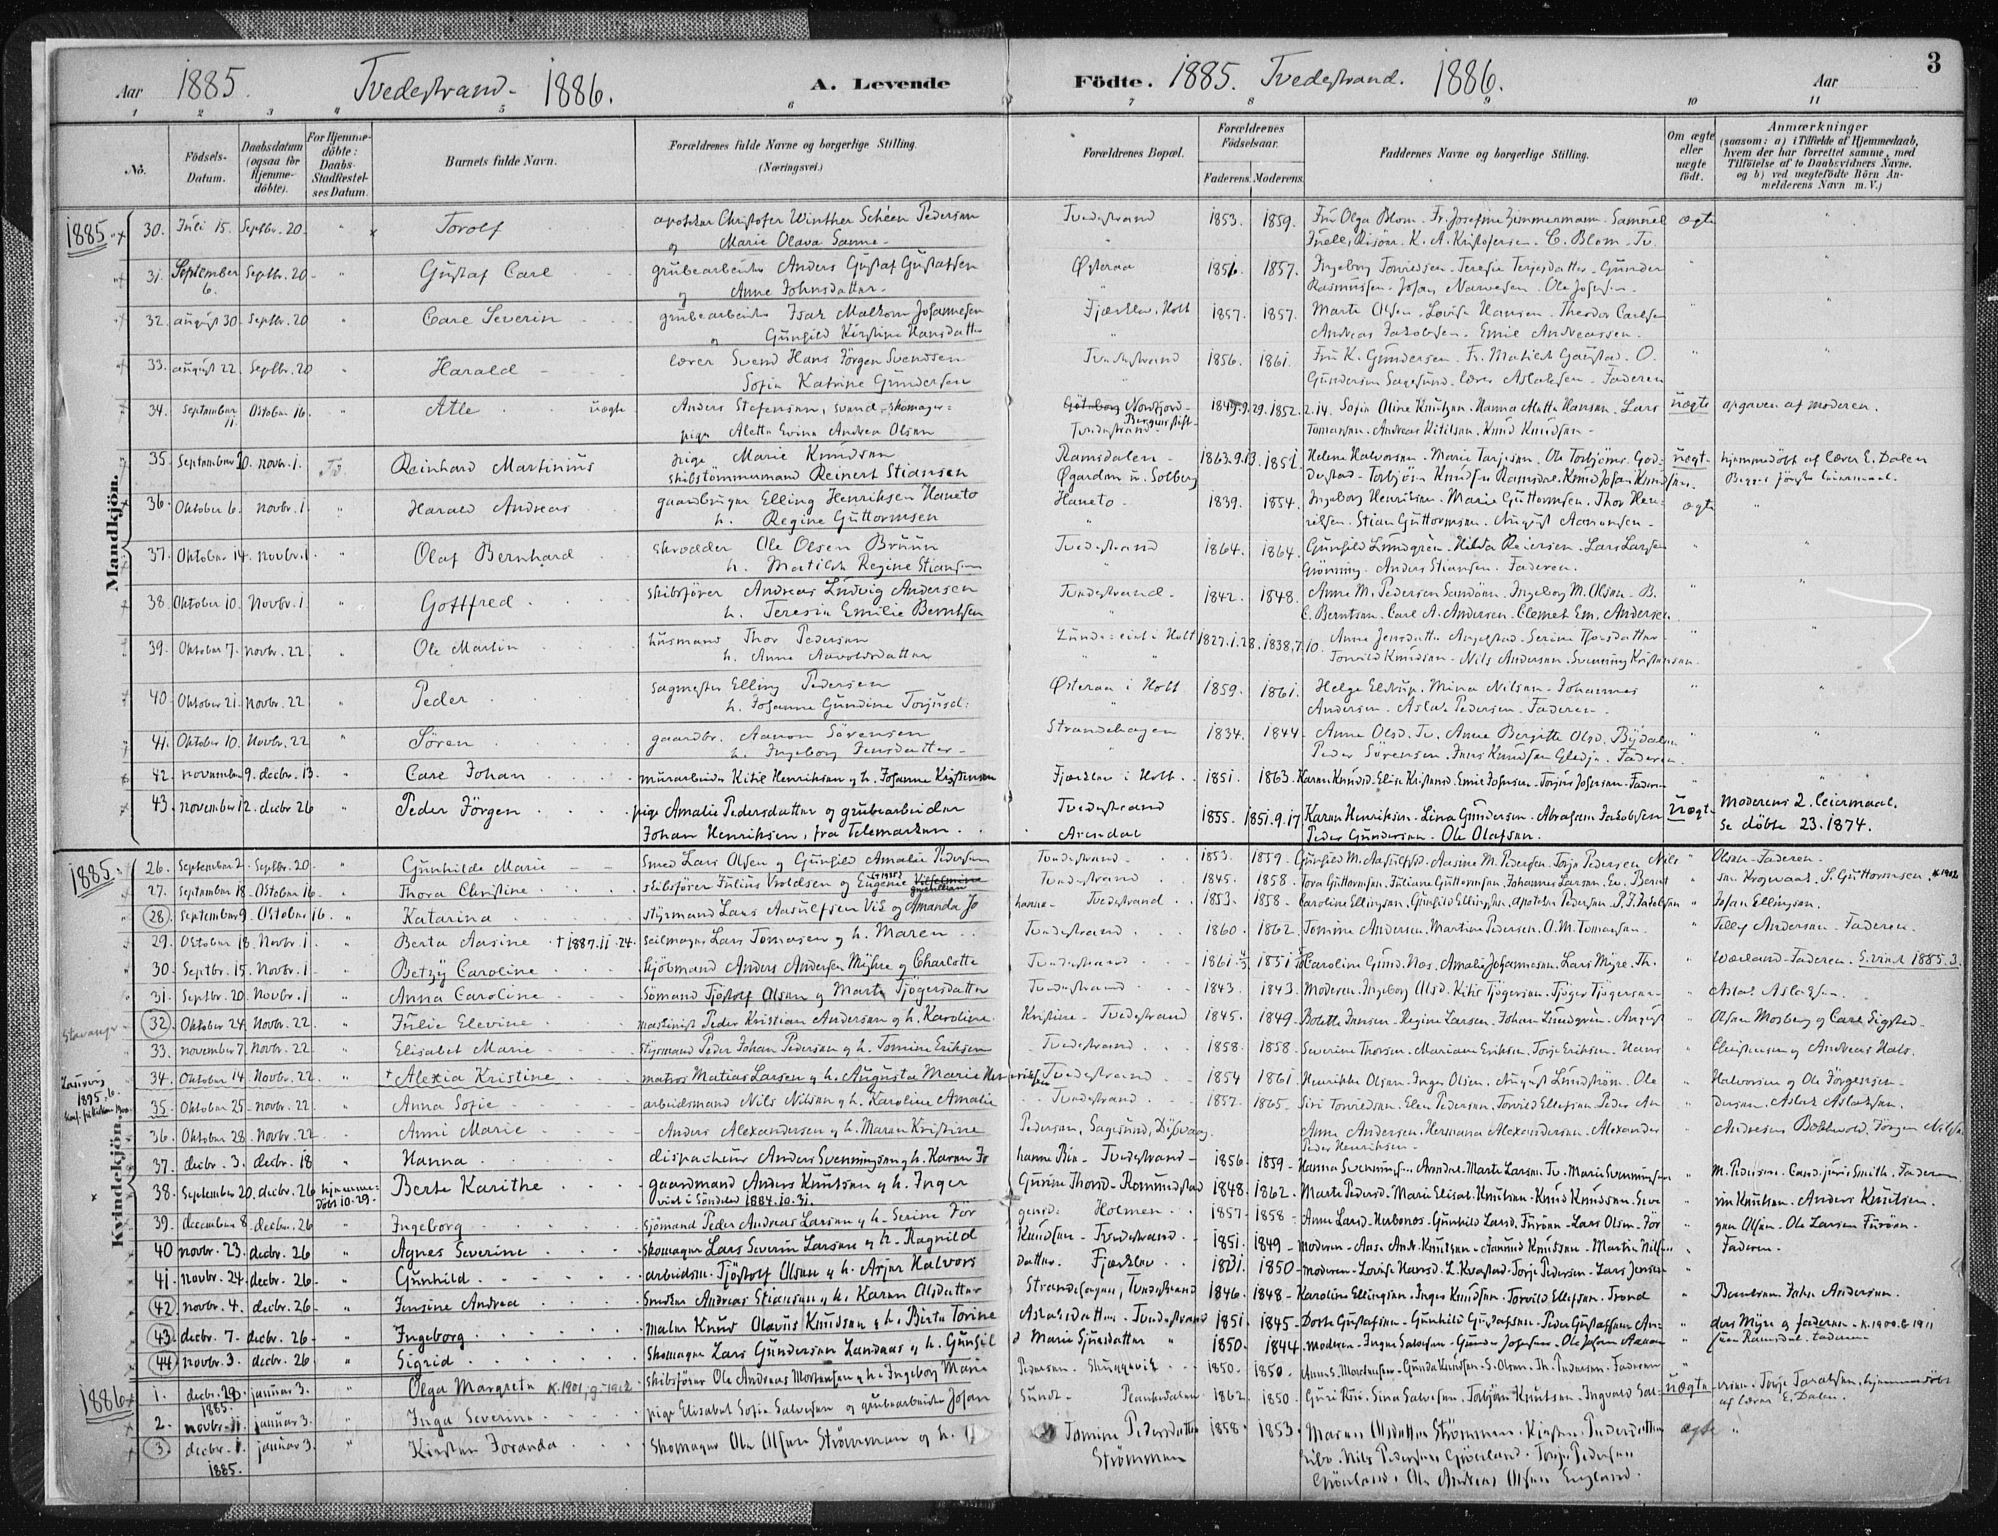 3
Aar 1885. Tvedestrand. 1886. A. Levende Födte. 1885. Tvedestrand. 1886. Aar
1 2 3 4 5 6 7 8 9 10 11
No. Födsels-Datum. Daabsdatum (ogsaa for Hjemme-döbte). For Hjemme-döbte: Daabs-Stadfæstel-ses Datum. Barnets fulde Navn. Forældrenes fulde Navne og borgerlige Stilling. (Næringsvei.) Forældrenes Bopæl. Forældrenes Födselsaar. Faderens. Moderens. Faddernes Navne og borgerlige Stilling. Om ægte eller uægte födt. Anmærkninger (saasom: a) i Tilfælde af Hjemmedaab, hvem der har forrettet samme, med Tilföielse af to Daabsvidners Navne. og b) ved uægtefödte Börn An-melderens Navn m. V.)
1885
Mandkjön.
30. Juli 15. Septbr. 20. Torolf apotheker Christofer Winther Schéen Pedersen Tvedestrand 1853. 1859. Fru Olga Blom. Fr. Josefine Zimmermann. Samuel ægte
og Marie Olava Sanne. K. A. Kristofersen. C. Blom. Tv.
31. September 6. Septbr. 20 Gustaf Carl grubearbeider Anders Gustaf Gustafsen Østeraa 1857. Ingeborg Torvildsen. Terese Terjesdatter. Gunder
og Anne Johnsdatter. Rasmussen. Johan Narvesen. Ole Josefsen.
32. august 30. Septbr. 20 Carl Severin grubearbeider Isak Malkom Johannesen Holt 1857. 1857. Marte Olsen. Lovise Hansen. Theodor Carlsen
og Gunhild Kirstine Hansdatter Andreas Jakobsen. Emil Andreassen.
33. august 22. Septbr. 20 Harald lærer Svend Hans Jörgen Svendsen Tvedestrand 1856. 1861. Fru K. Gundersen. Fr. Matilde Gaustad. O.
Sofie Katrine Gundersen Gundersen Sagesund. Lærer Aslaksen. Faderen
34. September 11. Oktober 16. Atle uægte Anders Stefensen, svend, skomager Nordfjord Bergens stift 1852. 2.14. Sofie Oline Knutsen. Hanna Alette Hansen. Lars uægte opgaven af moderen.
pige Aletta Evine Andrea Olsen Tvedestrand Tomassen. Andreas Kitilsen. Knud Knudsen.
35. September 20. novbr. 1. Reinhard Martinius pige Marie Knudsen Ramsdalen. 1863.9.13. 1851. Helene Halvorsen. Marie Tarjesen. Ole Torbjörns. God- uægt. hjemmedöbt af lærer E. Dalen
skibstömmermand Reinert Stiansen Øgarden u. Solberg derstad. Torbjörn Knudsen Ramsdal. Knud Johan Knudsen. Begges förste leiermaal.
36. Oktober 6. novbr. 1. Harald Andreas gaardbruger Elling Henriksen Haneto Haneto 1839. 1854. Ingeborg Henriksen. Marie Guttormsen. Thor Hen- ægte
h. Regine Guttormsen riksen. Stian Guttormsen. August Aanonsen.
37. Oktober 14. novbr. 1. Olaf Bernhard skrædder Ole Olsen Bruun Tvedestrand 1864. 1864. Gunhild Lundgren. Hilda Reiersen. Lars Larsen
h. Matilde Regine Stiansen Grönning. Anders Stiansen. Faderen.
38. Oktober 10. Novbr. 1. Gottfred skibsförer Andreas Ludvig Andersen Tvedestrand. 1842. 1848. Anne M. Pedersen Sandöen. Ingeborg M. Olsen. B.
h. Teresia Emilie Berntsen C. Berntsen. Carl A. Andersen. Clemet Em. Andersen.
39. Oktober 7. novbr. 22. Ole Martin husmand Thor Pedersen Lunde-eiet i Holt 1827.1.28. 1838.7.10. Anne Jensdatter Angelstad. Serine Thorsdatter
h. Anne Aavoldsdatter Torvild Knudsen. Nils Andersen. Svenning Kristensen.
40. Oktober 21. Novbr. 22 Peder sagmester Elling Pedersen Østeraa i Holt 1859. 1861. Helge Elstrup. Mina Nilsen. Johannes
h. Johanne Gundine Torjusd: Andersen. Aslak Pedersen. Faderen.
41. Oktober 10. Novbr. 22 Sören gaardbr. Aanon Sörensen Strandehagen 1834. 1844 Anne Olsd. Tv. Anne Bergitte Olsd. Bydalen
h. Ingeborg Jensdatter Peder Sörensen. Jens Knudsen Gledje. Faderen.
42. november 9. decbr. 13. Carl Johan murarbeider Kitil Henriksen og h. Johanne Kristensen i Holt. 1851. 1863. Karen Knudsd. Elise Kristensd. Emil Johnsen. Torjus Johnsen. Faderen
43. november 12. decbr 26 Peder Jörgen pige Amalie Pedersdatter og grubearbeider Tvedestrand 1855. 1851.9.17. Karen Henriksen. Lina Gundersen. Abraham Jakobsen uægte Moderens 2. leiermaal.
Johan Henriksen, fra Telemarken. Arendal Peder Gundersen. Ole Olafsen. Se döbte. 23. 1874.
1885.
Kvindekjön.
26. September 2. Septbr. 20. Gunhilde Marie Smed Lars Olsen og Gunhild Amalie Pedersen Tvedestrand 1853. 1859. Gunhild M. Aasulfsd. Aasine M. Pedersen. Torje Pedersen Nils Olsen. Faderen.
27. September 18. Oktober 16. Thora Christine skibsförer Julius Vroldsen og Eugenie Tvedestrand 1845. 1858. Tora Guttormsen. Juliane Guttormsen. Johannes Larsen. Ev. Bernt- sen Krogvaag. S. Guttormsen. K. 1902
28. September 9. Oktober 16. Katarina styrmand Lars Aasulfsen Vik og Amanda Jo hanne. Tvedestrand 1853. 1858. Caroline Ellingsen. Gunhild Ellingsen. Apotheker Pedersen. P. J. Jakobsen Johan Ellingsen.
29. Oktober 18. Novbr. 1. Berta Aasine † 1887.11.24. Seilmager Lars Tomasen og h. Maren Tvedestrand 1860. 1862. Tomine Andersen. Martine Pedersen. O. M. Tomassen. Tellef Andersen. Faderen.
30. Septbr. 15. Novbr. 1. Betzy Caroline kjöbmand Anders Andersen Myhre og Charlotte Tvedestrand 1861. 1851. Caroline Gund. Næs. Amalie Johannesen. Lars Myre. Th. Værland. Faderen. S. viet 1885.3.
31. Septbr. 20. Novbr. 1 Anna Caroline Sömand Tjöstolf Olsen og Marte Tjögersdatter Tvedestrand 1843. 1843. Moderen. Ingeborg Olsd. Kitil Tjögersen. Tjöger Tjögersen. Aslak Aslaksen.
32. Oktober 24. Novbr. 22. Julie Elevine maskinist Peder Kristian Andersen og h. Karoline Kristine. Tvedestrand 1845. 1849. Bolette Jensen. Regine Larsen. Johan Lundgren. August Olsen Mosberg og Carl Sigsted.
Stavanger
33. november 7. Novbr. 22. Elisabet Marie styrmand Peder Johan Pedersen og h. Tomine Eriksen Tvedestrand 1858. 1858. Severine Thorsen. Mariane Eriksen. Torje Eriksen. Hans Christensen og Andreas Hals.
34. Oktober 14. Novbr. 22. † Alexia Kristine matros Matias Larsen og h. Augusta Marie Hen riksen Tvedestrand 1854 1861 Henrikke Olsen. Inger Olsen. August Lundström. Ole Halvorsen og Ole Jörgensen.
1895.6.
35. Oktober 25. Novbr. 22. Anna Sofie arbeidsmand Nils Nilsen og h. Karoline Amalie Tvedestrand 1857. 1865. Siri Torvildsen. Elen Pedersen. Torvild Ellefsen. Peder An- dersen. Aslak Aslaksen.
36. Oktober 28. Novbr. 22 Anni Marie Anders Alexandersen og h. Maren Kristine Pedersen, Sagesund, Dypvaag. Anne Andersen. Hermana Alexandersen. Alexander Andreas Jörgen Nilsen
Peder Henriksen.
37. decbr. 3. decbr. 18 Hanna dispacheur Anders Svenningsen og h. Karen Jo hanne Tvedestrand 1856. 1859. Hanna Svenningsen Arendal. Marte Larsen. Tv. Marie Svenningsen M. Pedersen. Cand. juris Smith. Faderen
38. September 20. decbr. 26 hjemme-döbt 10.29. Berte Karithe gaardmand Anders Knutsen og h. Inger Gurine Thorsd. Ramundstad 1848. 1862. Marte Pedersd. Marie Elisab. Knutsen. Knud Knudsen. Seve- rin Knutsen. Anders Knutsen.
viet i Söndeled 1884.10.31.
39. december 8. decbr. 26. Ingeborg Sjömand Peder Andreas Larsen og h. Serine Jör gensd. Holmen 1857. 1858. Anne Larsd. Gunhild Larsd. Furöen. Lars Olsen. Jör gen Olsen. Ole Larsen Furöen.
40 novbr. 23. decbr. 26 Agnes Severine Skomager Lars Severin Larsen og h. Ragnild Knudsen. Tvedestrand 1851. 1849. Moderen. Aase Andr. Knutsen. Aanund Knudsen. Martin Nilsen Faderen.
41. novbr. 24. decbr. 26. Gunhild arbeidsm. Tjöstolf Olsen og h. Asjer Halvors datter. 1821. 1850. moderen. Lovise Hansd. L. Kvastad. Torje Pedersen. Lars Jensen
42. novbr. 4. decbr. 26. Jensine Andrea Snedker Andreas Stiansen og h. Karen Olsdatter Strandehagen, Tvedestrand 1846. 1848. Karoline Ellingsen. Inger Knudsen. Torvild Ellefsen. Trond Berntsen. John Andersen.
43. decbr. 7. decbr. 26. Ingeborg Maler Knud Olavus Knudsen og h. Berte Torine Aslaksdatter. Tvedestrand 1851. 1845. Dorte Gustafsen. Gunhild Gustafsen. Peder Gustafsen. An- ders Myre og faderen. K. 1900. G. 1911
44. novbr. 3. decbr. 26 Sigrid Skomager Lars Gundersen og h. Gunhil d Marie Gjensdatter 1850. 1844. Moderen. Inger Salvesen. Gunder Josefsen. Ole Johan Aanon sen Ramsdal. Faderen
1886
1. decbr. 29. 1885. januar 3. Olga Margrete K. 1901, g. 1912 skibsförer Ole Andreas Mortensen og h. Ingeborg Marie Pedersen. 1850. 1850. Anne S. Mortensen. Gunda Knudsen. S. Olsen. Th. Pedersen. Faderen
2. novbr. 11. januar 3. Inga Severine pige Elisabet Sofie Salvesen og grubearbeider Johan Sundt. Plankedalen 1862. 1850. Guri Rise. Sina Salvesen. Torbjörn Knutsen. Ingvald Sal- uægte vesen. Torje Taraldsen. hjemmedöbt
af lærer E. Dalen.
3 decbr. 1. 1885. januar 3. Kirsten Joranda Skomager Ole Olsen Strömmen og h. Tomine Pedersdatter 1858. 1853. Maren Olsdatter Strömmen. Kirsten Pedersdatter ægte
Strömmen Nils Pedersen Gjöverland. Torje Pedersen
Ole Andreas Olsen England.